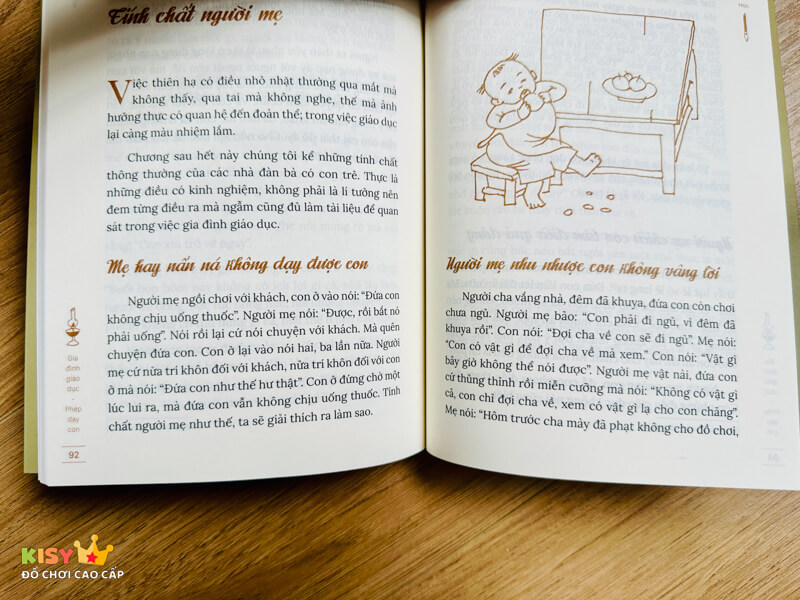 Tính chất người mẹ
Việc thiên hạ có điều nhỏ nhặt thường qua mắt mà
không thấy, qua tai mà không nghe, thế mà ảnh
hưởng thực có quan hệ đến đoàn thể; trong việc giáo dục
lại càng màu nhiệm lắm.
Chương sau hết này chúng tôi kể những tính chất
thông thường của các nhà đàn bà có con trẻ. Thực là
những điều có kinh nghiệm, không phải là lí tưởng nên
đem từng điều ra mà ngẫm cũng đủ làm tài liệu để quan
sát trong việc gia đình giáo dục.
Mẹ hay nấn ná không dạy được con
Người mẹ ngồi chơi với khách, con ở vào nói: "Đứa con
không chịu uống thuốc". Người mẹ nói: "Được, rồi bắt nó
phải uống". Nói rồi lại cứ nói chuyện với khách. Mà quên
chuyện đứa con. Con ở lại vào nói hai, ba lần nữa. Người
mẹ cứ nửa trí khôn đối với khách, nửa trí khôn đối với con
ở mà nói: "Đứa con như thế hư thật". Con ở đứng chờ một
lúc lui ra, mà đứa con vẫn không chịu uống thuốc. Tính
chất người mẹ như thế, ta sẽ giải thích ra làm sao.
Gia
đình giáo
dục
-
Phép
dạy
con
92
Người mẹ nhu nhược con không vâng lời
Người cha vắng nhà, đêm đã khuya, đứa con còn chơi
chưa ngủ. Người mẹ bảo: "Con phải đi ngủ, vì đêm đã
khuya rồi". Con nói: "Đợi cha về con sẽ đi ngủ". Mẹ nói:
"Con có vật gì để đợi cha về mà xem". Con nói: "Vật gì
bây giờ không thể nói được". Người mẹ vật nài, đứa con
cứ thủng thỉnh rồi miễn cưỡng mà nói: "Không có vật gì
cả, con chỉ đợi cha về, xem có vật gì lạ cho con chăng".
Mẹ nói: "Hôm trước cha mày đã phạt không cho đồ chơi,
KISY
ĐỒ CHƠI CAO CẤP